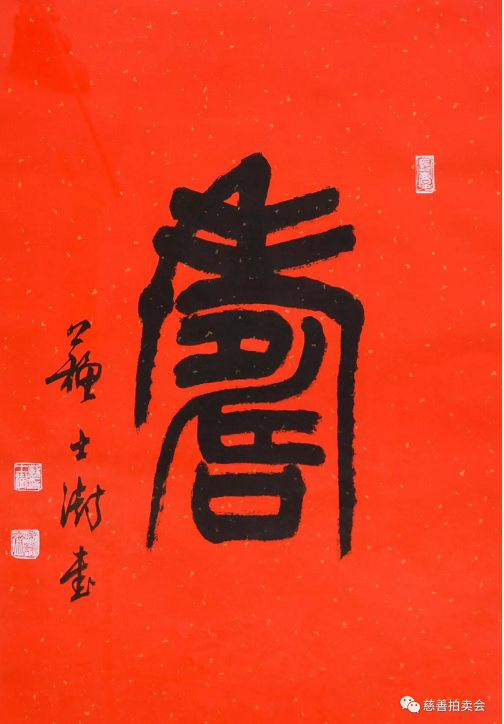 壽
蘇士澍書
慈善拍卖会